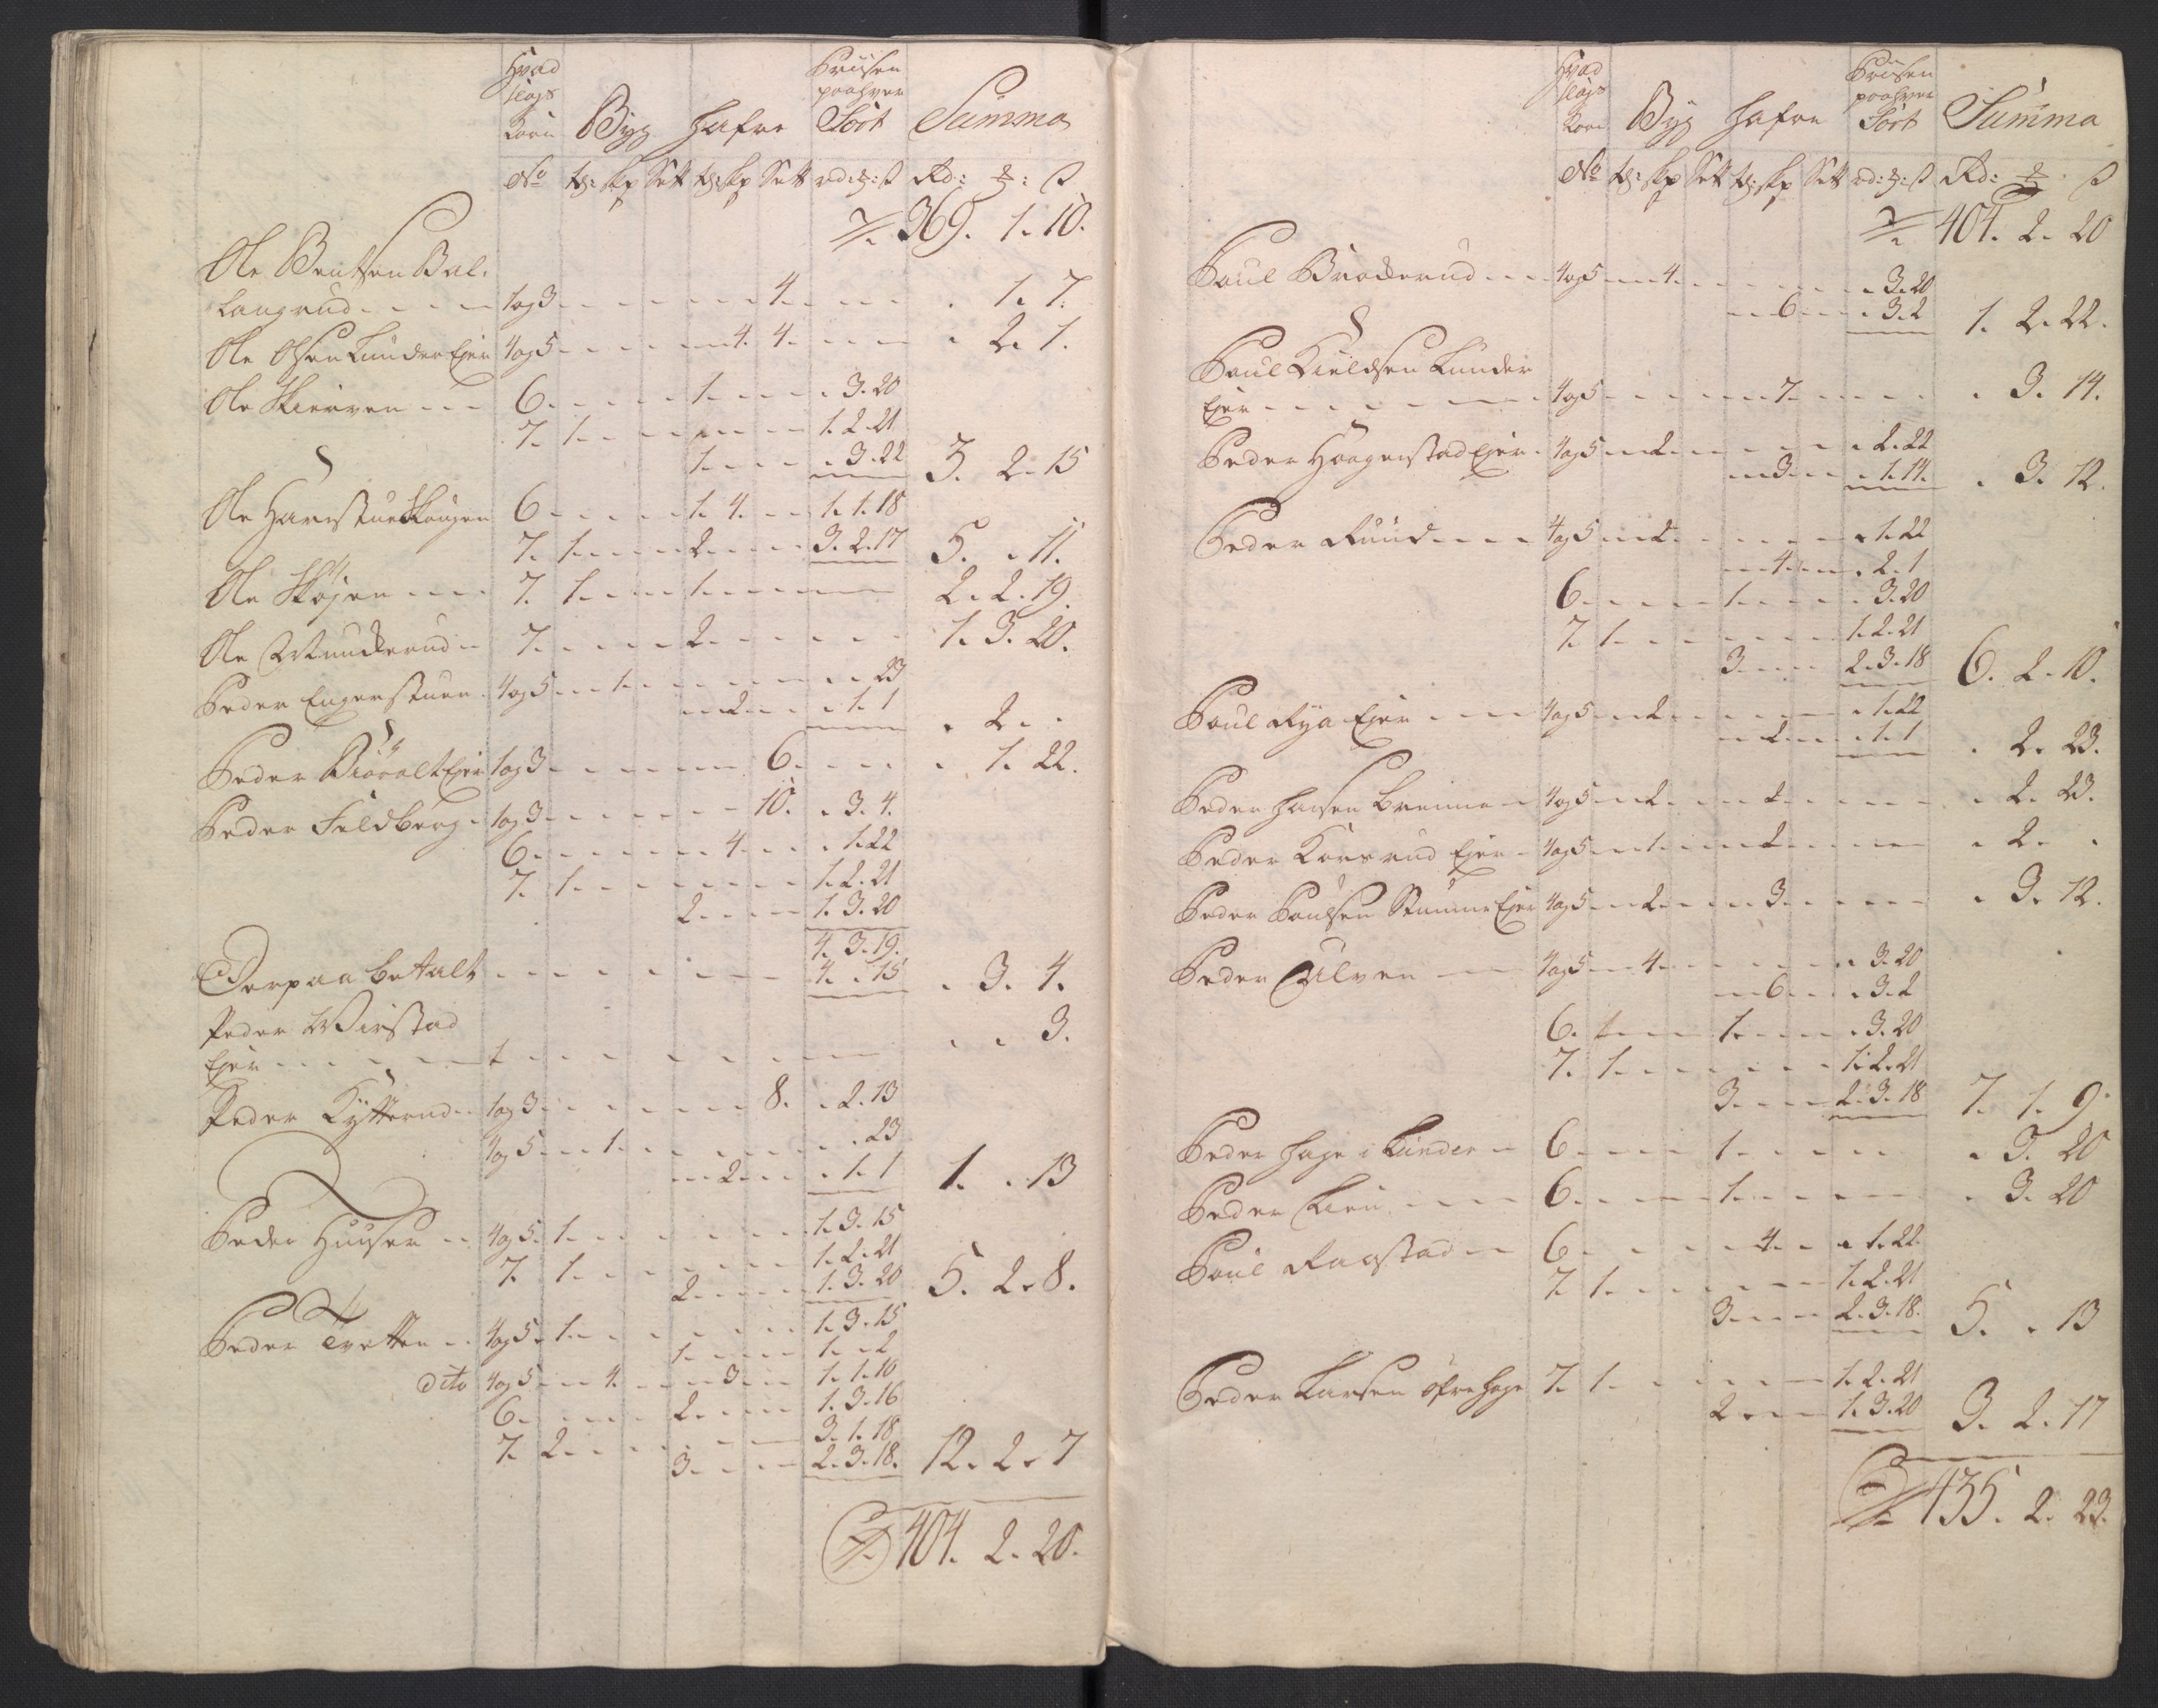 Hvad slags Korn Byg Hafre Priisen paa hver Sort Summa
No td: skp Sett td: skp Sett rd: ß Rd: ß
369. 1. 10.
Ole Bentsen Bal-
langrud 1 og 3 4. . 1. 7.
Ole Olsen Lunder Ejer 4 og 5 4. 4. . 2. 1.
Ole Skierven 6. 1. . 3. 20
7. 1. 1. 2. 21
1. . 3. 22 3. 2. 15
Ole Skougen 6. 1. 4. 1. 1. 18
7. 1. 2. 3. 2. 17 5. . 11.
Ole Skøjen 7. 1. 1. 2. 2. 19.
Ole 7. 2. 1. 3. 20.
Peder Engerstuen 4 og 5 1. . . 23
2. . 1. 1 . 2. .
Peder Ejer 1 og 3 6. . 1. 22.
Peder Feldberg 1 og 3 10. . 3. 4.
6. 4. . 1. 22
7. 1. 1. 2. 21
2. 1. 3. 20
4. 3. 19.
Derpaa betalt 4. . 15 . 3. 4.
Peder Wirstad
Ejer . . 3.
Peder Kytterud 1 og 3 8. . 2. 13
4 og 5 1. . . 23
2. . 1. 1 1. . 13
Peder 4 og 5. 1. 1. 3. 15
7. 1. 1. 2. 21
2. 1. 3. 20 5. 2. 8.
Peder Tvetten 4 og 5. 1. 1. 3. 15
1. 1. . 2
dito 4 og 5 4. 3. 1. 1. 10
6. 2. 1. 3. 16
7. 2. 3. 1. 18
3. 2. 3. 18. 12. 2. 7
404. 2. 20.
Hvad slags Korn Byg Hafre Priisen paa hver Sort Summa
No td: skp Sett td: skp Sett rd: ß Rd: ß
404. 2. 20
Poul Brokerud 4 og 5 4. . 3. 20
6. . 3. 2 1. 2. 22.
Poul Kieldsen Lunder
Ejer 4 og 5 7. . 3. 14.
Peder Haagenstad Ejer 4 og 5 2. . 2. 22
3. . 1. 14. . 3. 12.
Peder Ruud 4 og 5 2. . 1. 22
4. . 2. 1
6. 1. . 3. 20
7. 1. 1. 2. 21
3. 2. 3. 18 6. 2. 10.
Poul Rya Ejer 4 og 5 2. . 1. 22
2. . 1. 1 . 2. 23.
Peder Hansen 4 og 5 2. 2. . 2. 23.
Peder Korsrud Ejer 4 og 5 1. 2. . 2. .
Peder Poulsen Ejer 4 og 5 2. 3. . 3. 12.
Peder Ulven 4 og 5 4. . 3. 20
6. . 3. 2
6. 1. . 3. 20
7. 1. 1. 2. 21
3. 2. 3. 18 7. 1. 9.
Peder Hage i Lunder 6. 1. . 3. 20
Peder Lien 6. 1. . 3. 20
Poul Ragstad 6. 4. . 1. 22.
7. 1. 1. 2. 21
3. 2. 3. 18. 5. . 13
Peder Larsen øfre Hage 7. 1. 1. 2. 21
2. 1. 3. 20 3. 2. 17
435. 2. 23.